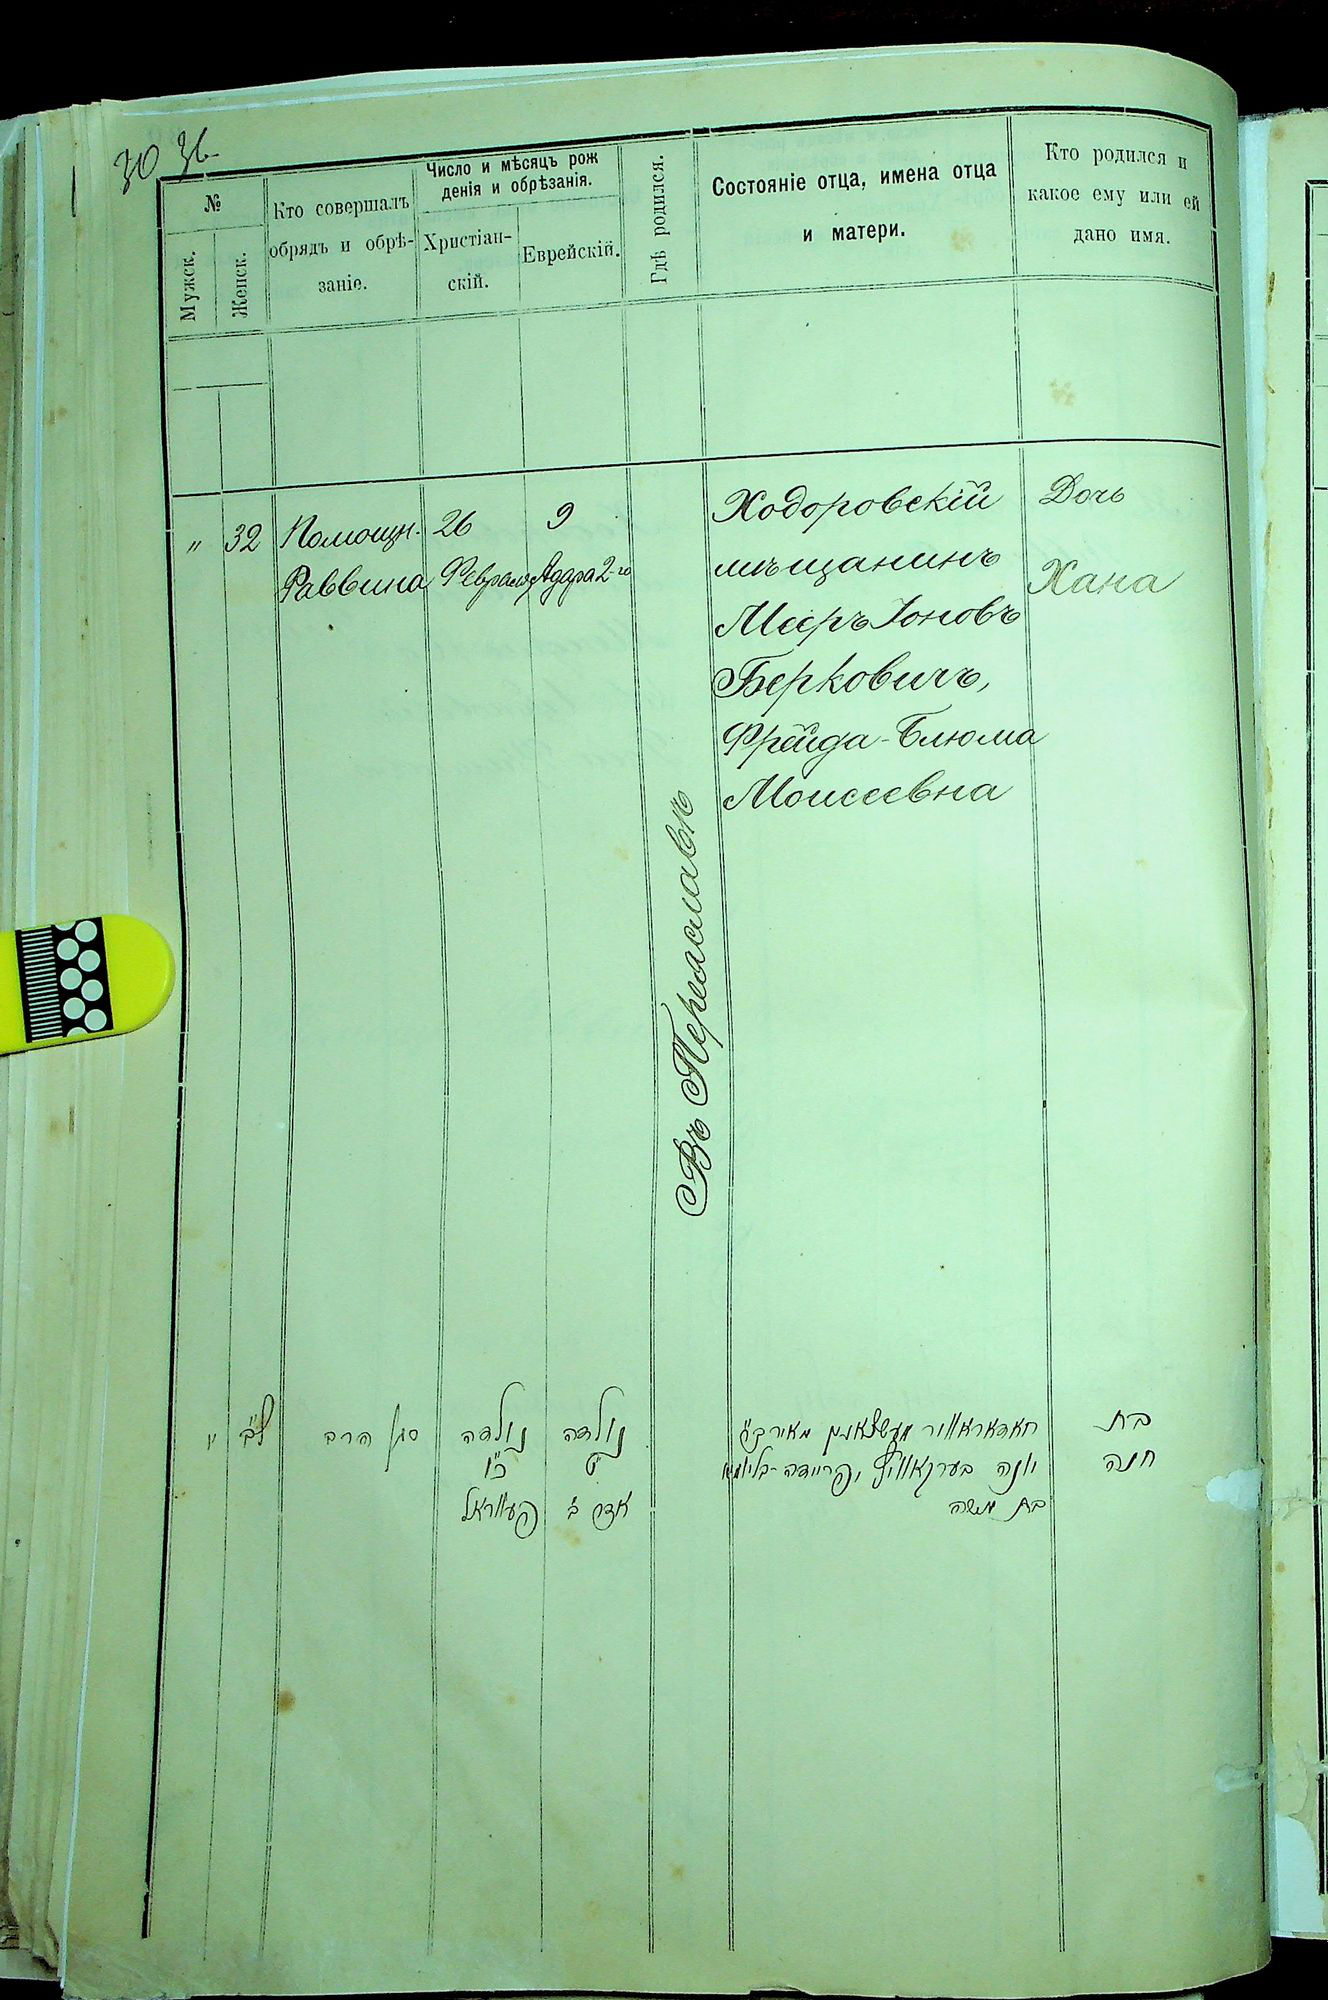 30 36
№
Мужск.
Женск.
Кто совершалъ
обрядъ и обрѣ-
заніе.
Число и мѣсяцъ рож
денія и обрѣзанія.
Христіан-
скій.
Еврейскій.
Гдѣ родился.
Состояніе отца, имена отца
и матери.
Кто родился и
какое ему или ей
дано имя.
" 32
Помощн.
Раввина
26
Февраля
9
Адара 2-го
Въ Переяславѣ
Ходоровскій
мѣщанинъ
Мееръ Іоновъ
Берковичъ,
Фрейда-Блюма
Моисеевна
Дочь
Хана
" ל"ב
סגן הרב
נולדה
כ"ו
פעווראל
נולדה
ט'
אדר ב'
מאיר
יונה בערקאוויץ, פריידה-בלומא
בת משה
בת
חנה